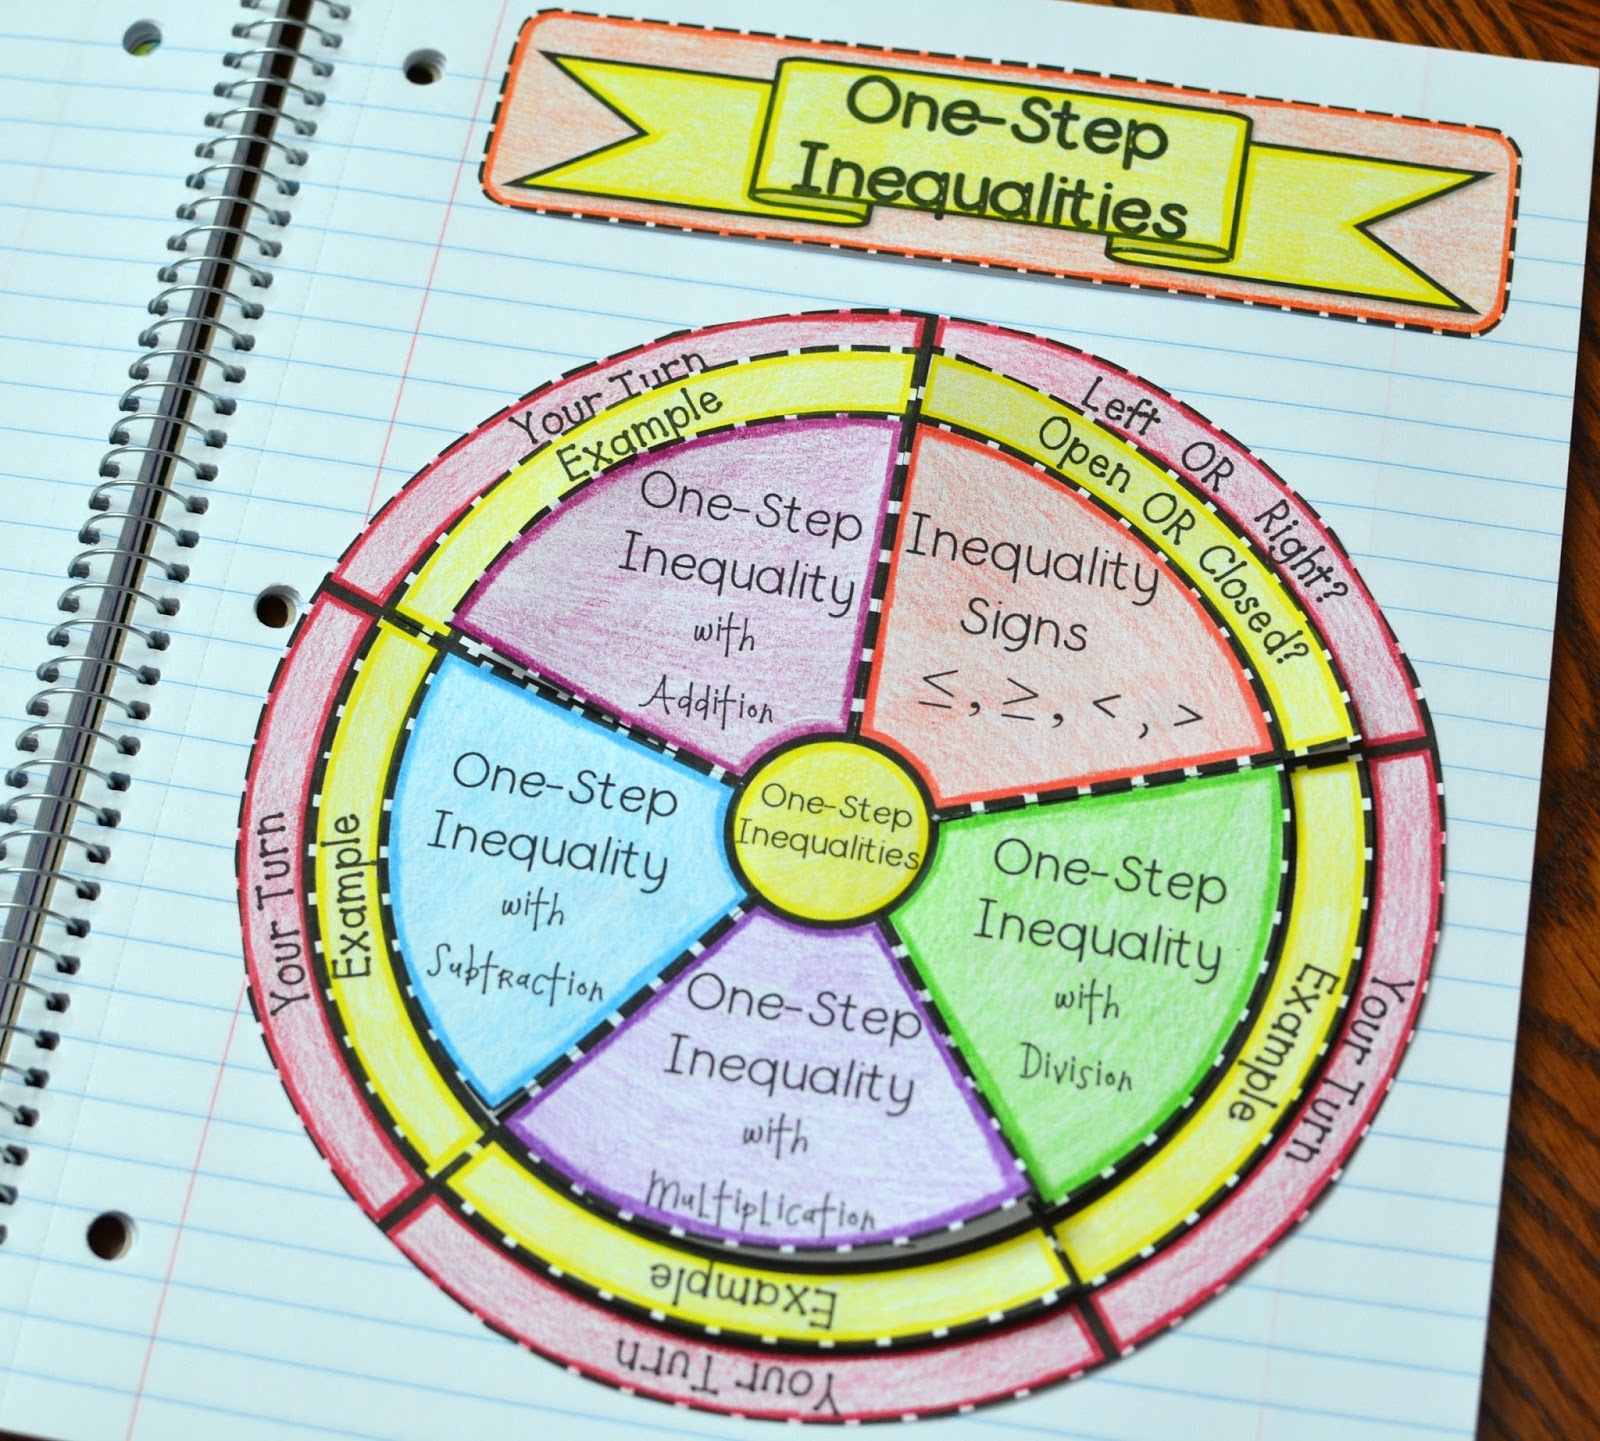 One-Step
Inequalities
Your Turn
Example
One-Step
Inequality
with
Addition
Left OR Right?
Open OR Closed?
Inequality
Signs
≤, ≥, <, >
Your Turn
Example
One-Step
Inequality
with
Subtraction
One-Step
Inequalities
One-Step
Inequality
with
Division
Example
Your Turn
One-Step
Inequality
with
Multiplication
Example
Your Turn